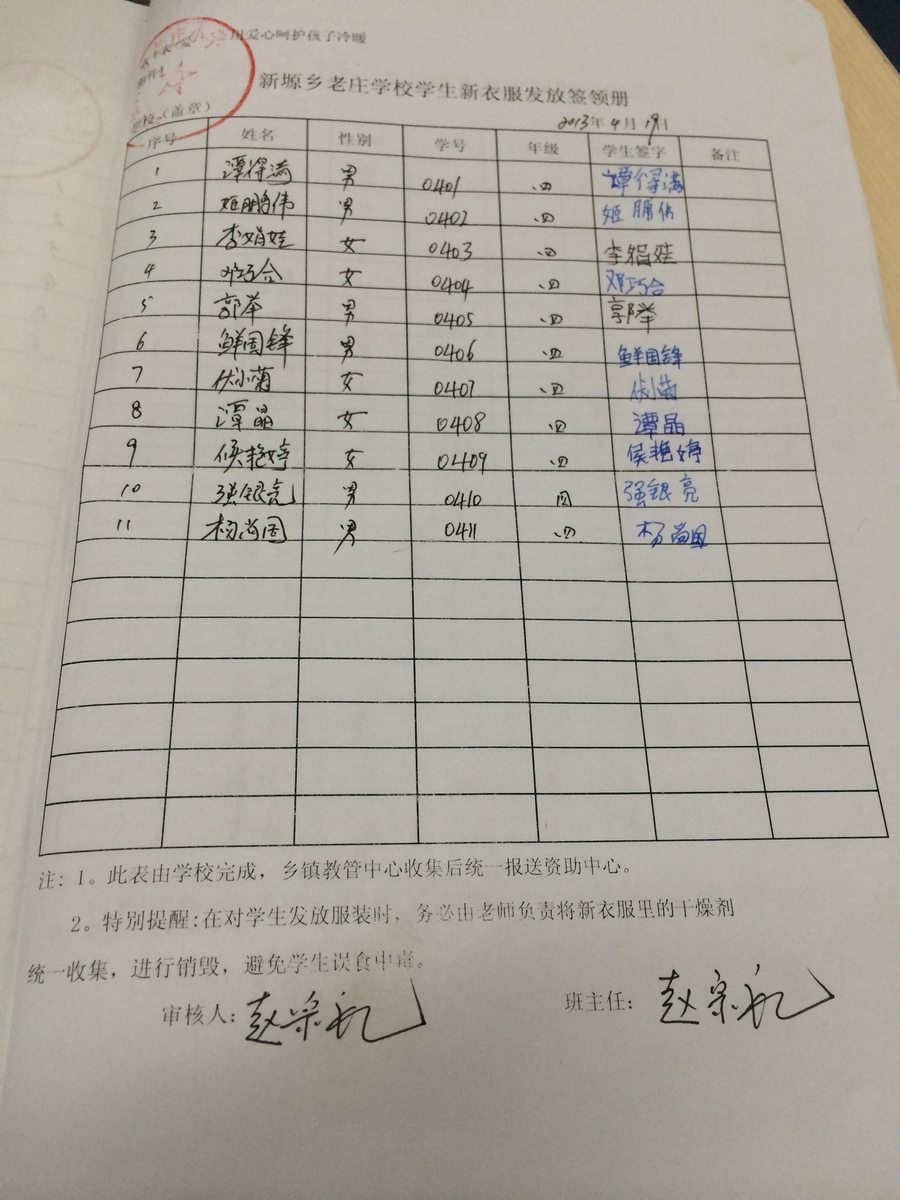 用爱心呵护孩子冷暖
新塬乡老庄学校学生新衣服发放签领册
学校（盖章）
2013年4月19日
序号 姓名 性别 学号 年级 学生签字 备注
1 谭得满 男 0401 四 谭得满
2 姬鹏伟 男 0402 四 姬鹏伟
3 李娟娃 女 0403 四 李娟娃
4 邓巧合 女 0404 四 邓巧合
5 郭举 男 0405 四 郭举
6 鲜国锋 男 0406 四 鲜国锋
7 伏小菊 女 0407 四 伏小菊
8 谭晶 女 0408 四 谭晶
9 侯艳婷 女 0409 四 侯艳婷
10 强银亮 男 0410 四 强银亮
11 杨尚国 男 0411 四 杨尚国
注: 1。此表由学校完成，乡镇教管中心收集后统一报送资助中心。
2。特别提醒:在对学生发放服装时，务必由老师负责将新衣服里的干燥剂
统一收集，进行销毁，避免学生误食中毒。
审核人: 赵宗礼 班主任: 赵宗礼